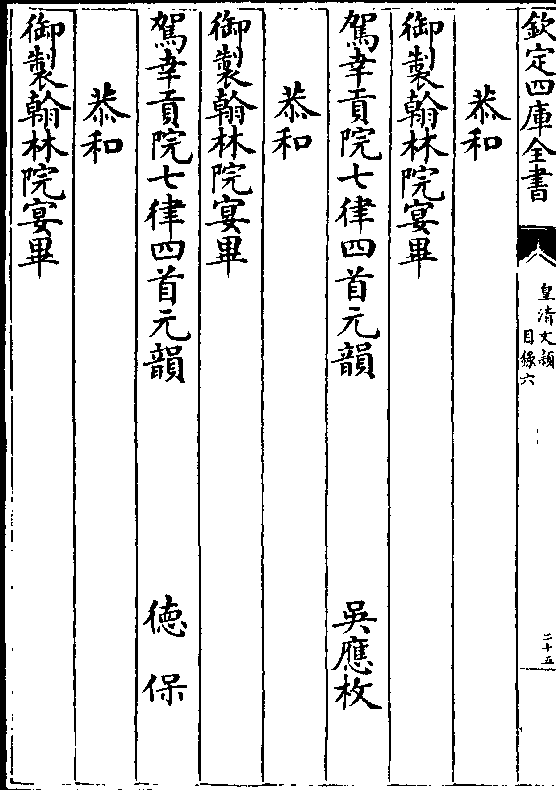 欽定四庫全書
皇清文穎
目錄六
二十五
恭和
御製翰林院宴畢
駕幸貢院七律四首元韻 吳應枚
恭和
御製翰林院宴畢
駕幸貢院七律四首元韻 德保
恭和
御製翰林院宴畢